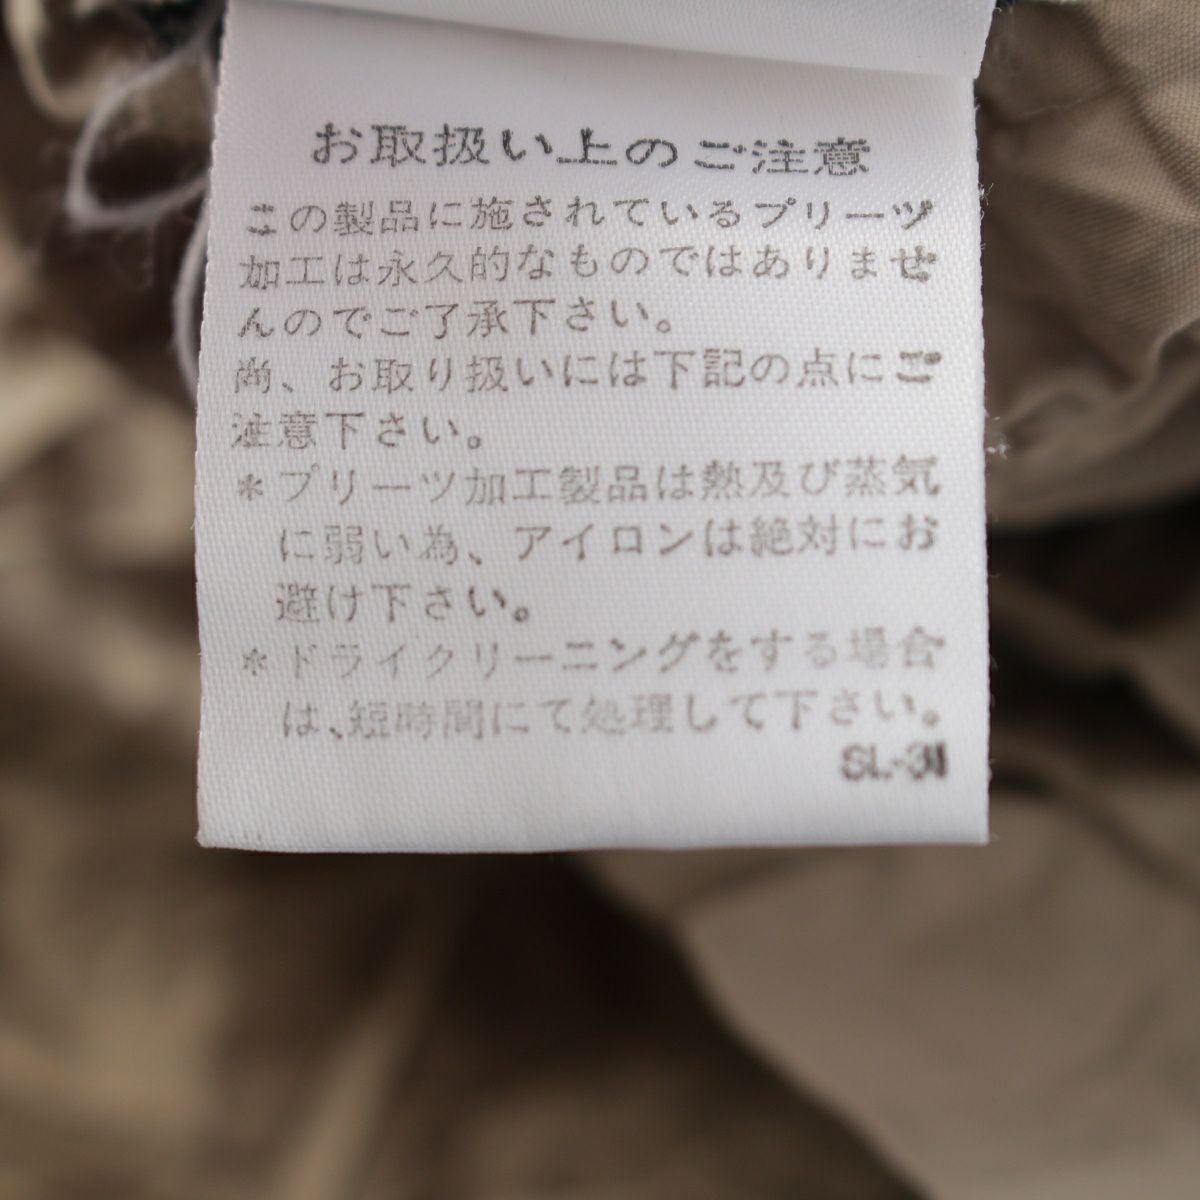 お取扱い上のご注意
この製品に施されているプリーツ
加工は永久的なものではありませ
んのでご了承下さい。
尚、お取り扱いには下記の点にご
注意下さい。
*プリーツ加工製品は熱及び蒸気
に弱い為、アイロンは絶対にお
避け下さい。
*ドライクリーニングをする場合
は、短時間にて処理して下さい。